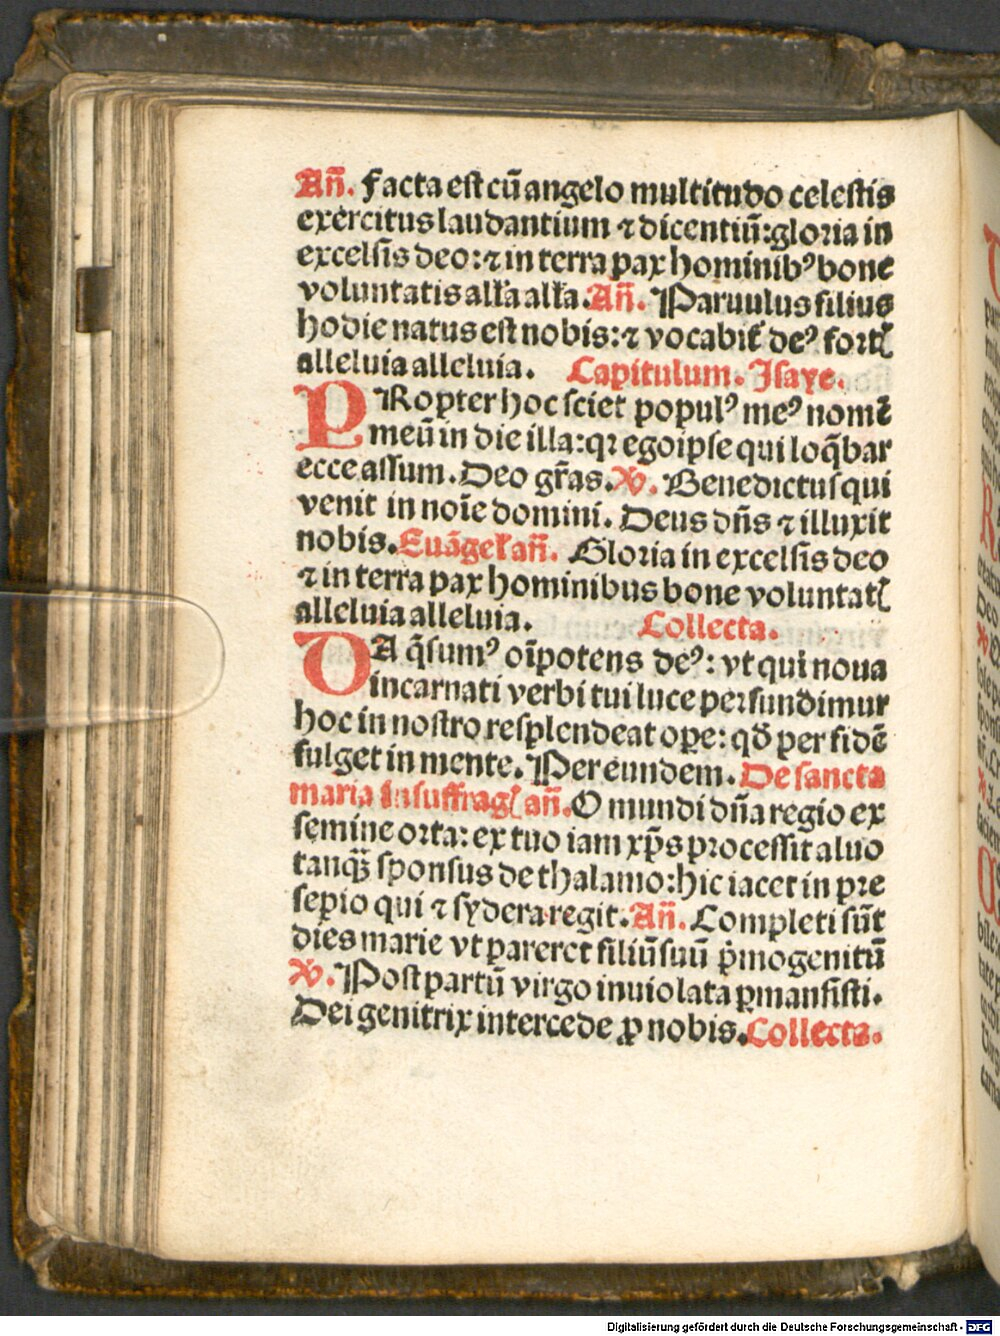 Añ. Facta est cū angelo multitudo celestis
exercitus laudantium ⁊ dicentiū: gloria in
excelsis deo: ⁊ in terra pax hominibꝰ bone
voluntatis alľa alľa. Añ. Paruulus filius
hodie natus est nobis: ⁊ vocabiť deꝰ fortꝭ
alleluia alleluia. Capitulum. Isaye.
PRopter hoc sciet populꝰ meꝰ nomē
meū in die illa: qꝛ ego ipse qui loq̄bar
ecce assum. Deo gr̄as. ℣. Benedictus qui
venit in noīe domini. Deus dn̄s ⁊ illuxit
nobis. Euāgeľ añ. Gloria in excelsis deo
⁊ in terra pax hominibus bone voluntatꝭ
alleluia alleluia. Collecta.
DA q̄sumꝰ oīpotens deꝰ: vt qui noua
incarnati verbi tui luce perfundimur
hoc in nostro resplendeat oꝑe: qđ per fidē
fulget in mente. Per eundem. De sancta
maria in suffragꝭ añ. O mundi dn̄a regio ex
semine orta: ex tuo iam xp̄s processit aluo
tanqꝫ sponsus de thalamo: hic iacet in pre
sepio qui ⁊ sydera regit. Añ. Completi sūt
dies marie vt pareret filiū suū p̄mogenitū
℣. Post partū virgo inuiolata ꝑmansisti.
Dei genitrix intercede ꝓ nobis. Collecta.
Digitalisierung gefördert durch die Deutsche Forschungsgemeinschaft - DFG